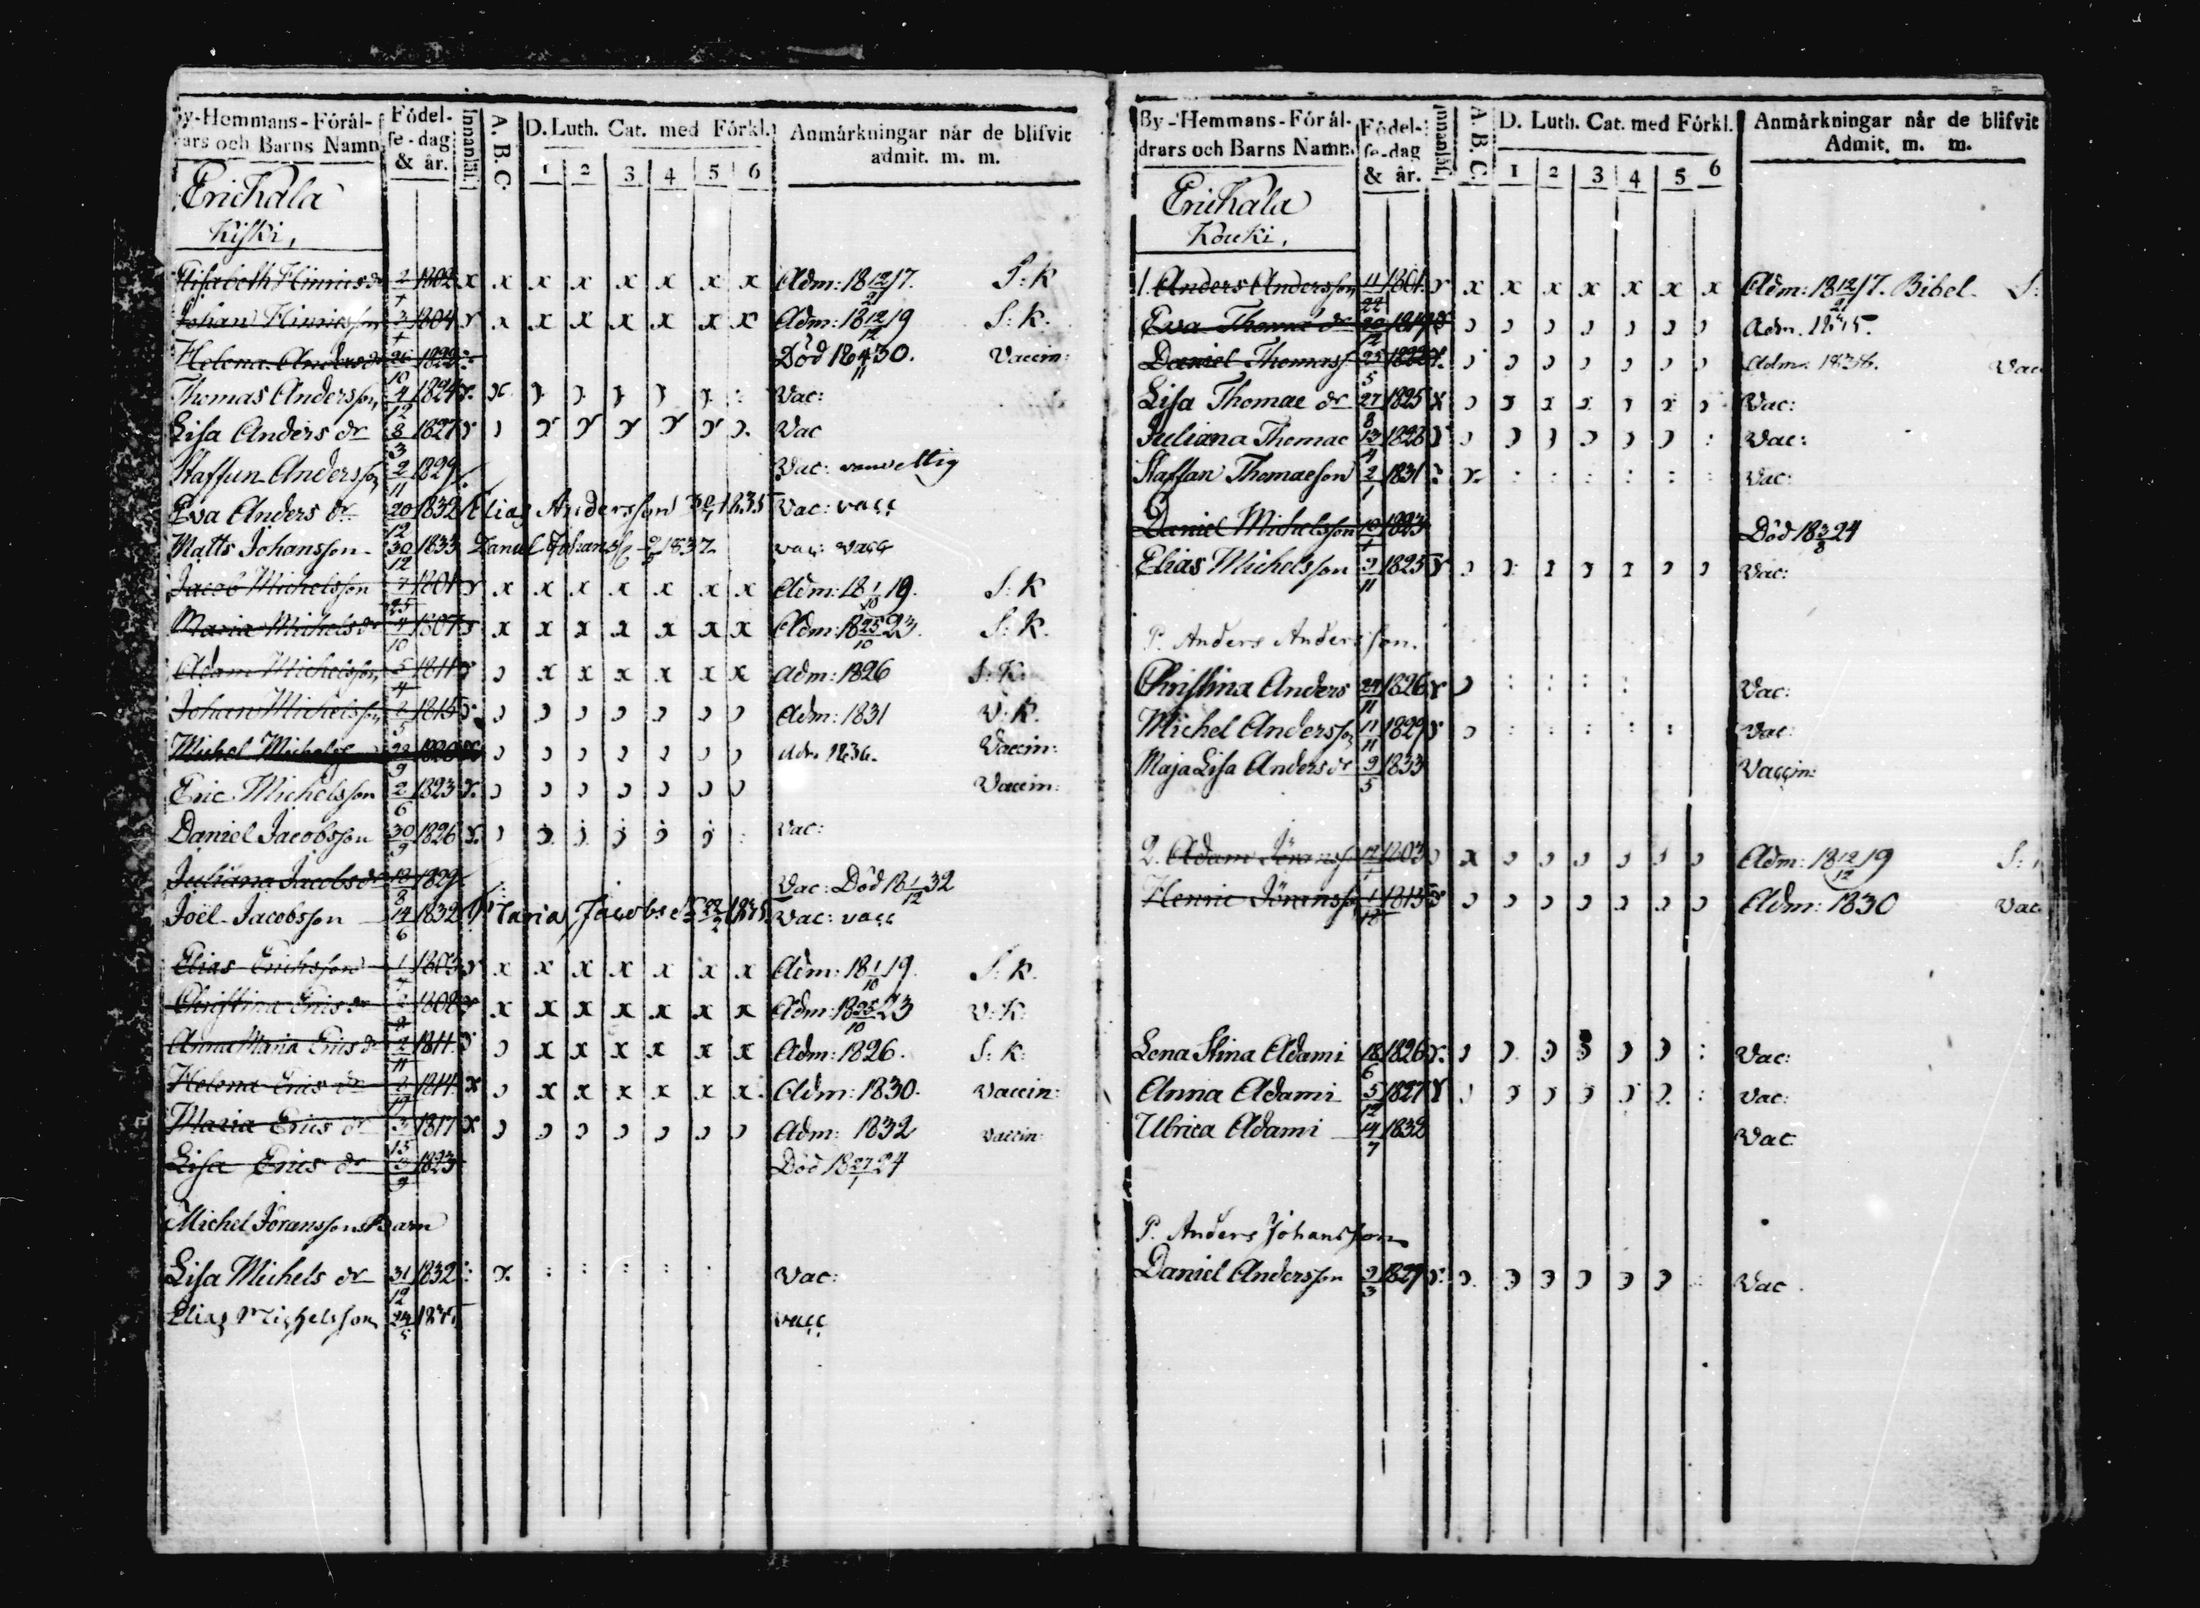 By-Hemmans-Förål-
drars och Barns Namn.
Födel-
se-dag
& år.
Innanläf.
A. B. C.
D. Luth. Cat. med Förkl.
1 2 3 4 5 6
Anmårkningar når de blifvit
admit. m. m.
Erichala
Kiski,
Elisabeth Hinrics dr 2/7 1802 x x x x x x x x Adm: 18 12/21 17. S: k
Johan Hinricsson 3/7 1804 x x x x x x x x Adm: 18 12/12 19 S: k.
Helena Anders dr 26/10 1822 Död 18 4/11 30. Vaccin:
Thomas Andersson 4/12 1824 Vac:
Lisa Anders dr 8/3 1827 Vac
Staffan Andersson 2/11 1829 Vac: vanvettig
Eva Anders dr 20/12 1832 Elias Andersson 30/7 1835 Vac: vacc
Matts Johansson 30/12 1833 Daniel Johanss 1837 vac: vacc
Jacob Michelsson 7/25 1801 x x x x x x x x Adm: 18 1/10 19. S: k
Maria Michels dr 4/10 1807 x x x x x x x x Adm: 18 25/10 23. S: k.
Adam Michelsson 5/4 1811 x x x x x x Adm: 1826 S: K.
Johan Michelsson 2/5 1815 Adm: 1831 V: K.
Michel Michelss 22/9 1820 Adm. 1836. Vaccin:
Eric Michelsson 2/6 1823 Vaccin:
Daniel Jacobsson 30/9 1826 Vac:
Juliana Jacobs dr 18/8 1829 Vac: Död 18 1/12 32
Joël Jacobsson 14/6 1832 Maria Jacobs dr 22/2 1835 Vac: vacc
Elias Erichsson 1/7 1803 x x x x x x x x Adm: 18 1/10 19. S: k.
Christina Erics dr 1808 x x x x x x x x Adm: 18 25/10 23 V: K:
Anna Maria Erics dr 2/11 1811 x x x x x x Adm: 1826. S: K:
Helena Erics dr 1814 x x x x x x x Adm: 1830. Vaccin:
Maria Erics dr 3/15 1817 x Adm: 1832 Vaccin:
Lisa Erics dr 3/9 1823 Död 18 27/1 24
Michel Jöransson Barn
Lisa Michels dr 31/12 1832 Vac:
Elias Michelsson 24/5 vacc
By-Hemmans-Förål-
drars och Barns Namn.
Födel-
se-dag
& år.
Innanläf.
A. B. C.
D. Luth. Cat. med Förkl.
1 2 3 4 5 6
Anmårkningar når de blifvit
Admit. m. m.
Erichala
Kouki,
1. Anders Andersson 11/22 1801 x x x x x x x x Adm: 18 12/21 17. Bibel. S:
Eva Thomæ dr 20/12 1819 Adm.
Daniel Thomass 25/5 1822 Adm: 1838. Vac
Lisa Thomae dr 27/8 1825 x Vac:
Juliana Thomae 13/4 1828 Vac:
Staffan Thomaeson 2/1 1831 Vac:
Daniel Michelsson 10/1 1823 Död 18 3/8 24
Elias Michelsson 3/11 1825 Vac:
P. Anders Andersson.
Christina Anders 24/11 1826 Vac:
Michel Andersson 17/11 1829 Vac:
Maja Lisa Anders dr 9/5 1833 Vaccin:
2. Adam Jöranss 1803 x Adm: 18 12/12 19 S:
Henric Jöranss 1/10 1815 Adm: 1830 Vac
Lena Stina Adami 18/6 1826 Vac:
Anna Adami 5/12 1827 Vac:
Ulrica Adami 14/7 1832 Vac
P. Anders Johansson
Daniel Andersson 9/3 1829 Vac.